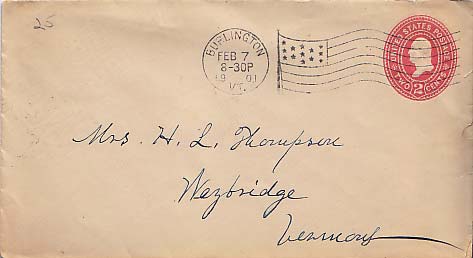 25
BURLINGTON
FEB 7
8-30P
19 01
VT.
UNITED STATES POSTAGE
TWO 2 CENTS
Mrs. H. L. Thompson
Weybridge
Vermont